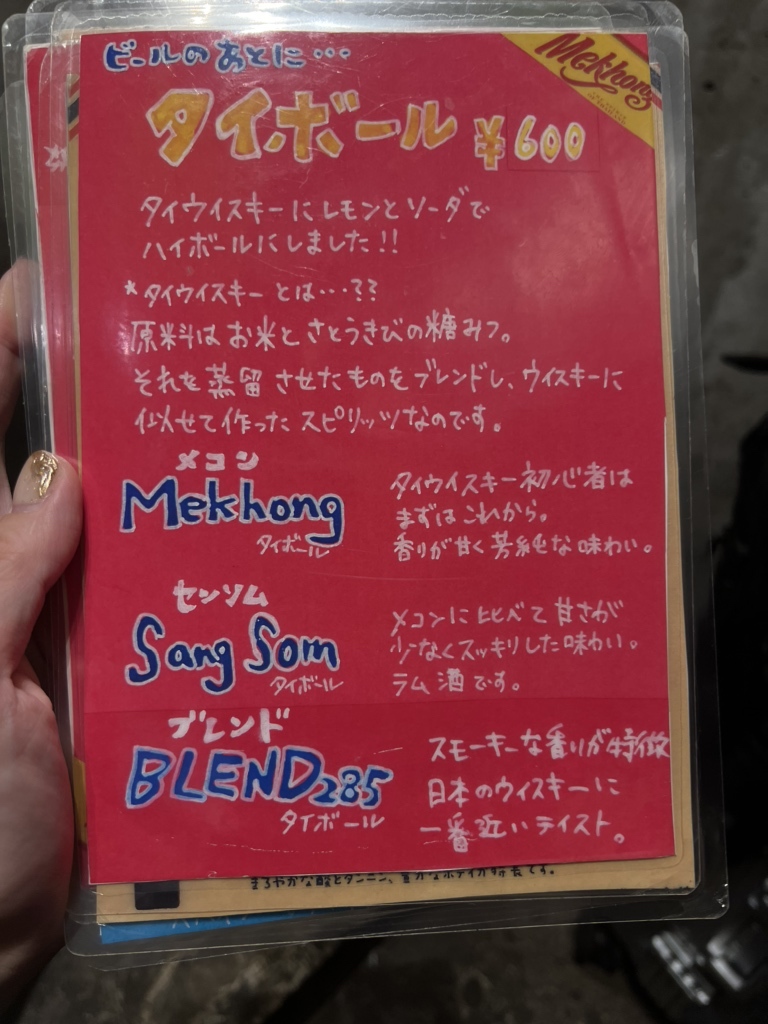 ビールのあとに…
Mekhong
タイボール ¥600
タイウイスキーにレモンとソーダで
ハイボールにしました!!
*タイウイスキーとは…??
原料はお米とさとうきびの糖みつ。
それを蒸留させたものをブレンドし、ウイスキーに
似せて作ったスピリッツなのです。
メコン
Mekhong
タイボール
タイウイスキー初心者は
まずはこれから。
香りが甘く芳純な味わい。
センソム
Sang Som
タイボール
メコンに比べて甘さが
少なくスッキリした味わい。
ラム酒です。
ブレンド
BLEND285
タイボール
スモーキーな香りが特徴
日本のウィスキーに
一番近いテイスト。
まろやかな酸とタンニン、